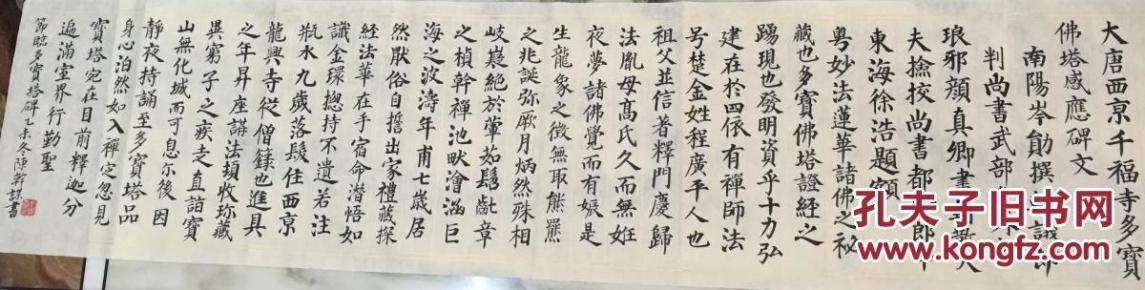 大唐西京千福寺多寶
佛塔感應碑文
南陽岑勛撰
判尚書武部
琅邪顏真卿書
夫撿挍尚書都
東海徐浩題額
粵妙法蓮華諸佛之祕
藏也多寶佛塔證經之
踴現也發明資乎十力弘
建在於四依有禪師法
号楚金姓程廣平人也
祖父並信著釋門慶歸
法胤母髙氏久而無姙
夜夢諸佛覺而有娠是
生龍象之徵無取熊羆
之兆誕弥厥月炳然殊相
岐嶷絕於葷茹髫齔章
之楨幹禪池畎澮涵巨
海之波濤年甫七歲居
然厭俗自誓出家禮藏探
經法華在手宿命潛悟如
識金環揔持不遺若注
瓶水九歲落髮住西京
龍興寺從僧籙也進具
之年昇座講法頓收珎藏
異窮子之疾走直詣寶
山無化城而可息尒後因
靜夜持誦至多寶塔品
身心泊然如入禪定忽見
寶塔宛在目前釋迦分
遍滿空界行勤聖
節臨多寶塔碑乙未冬陳書
孔夫子旧书网
www.kongfz.com